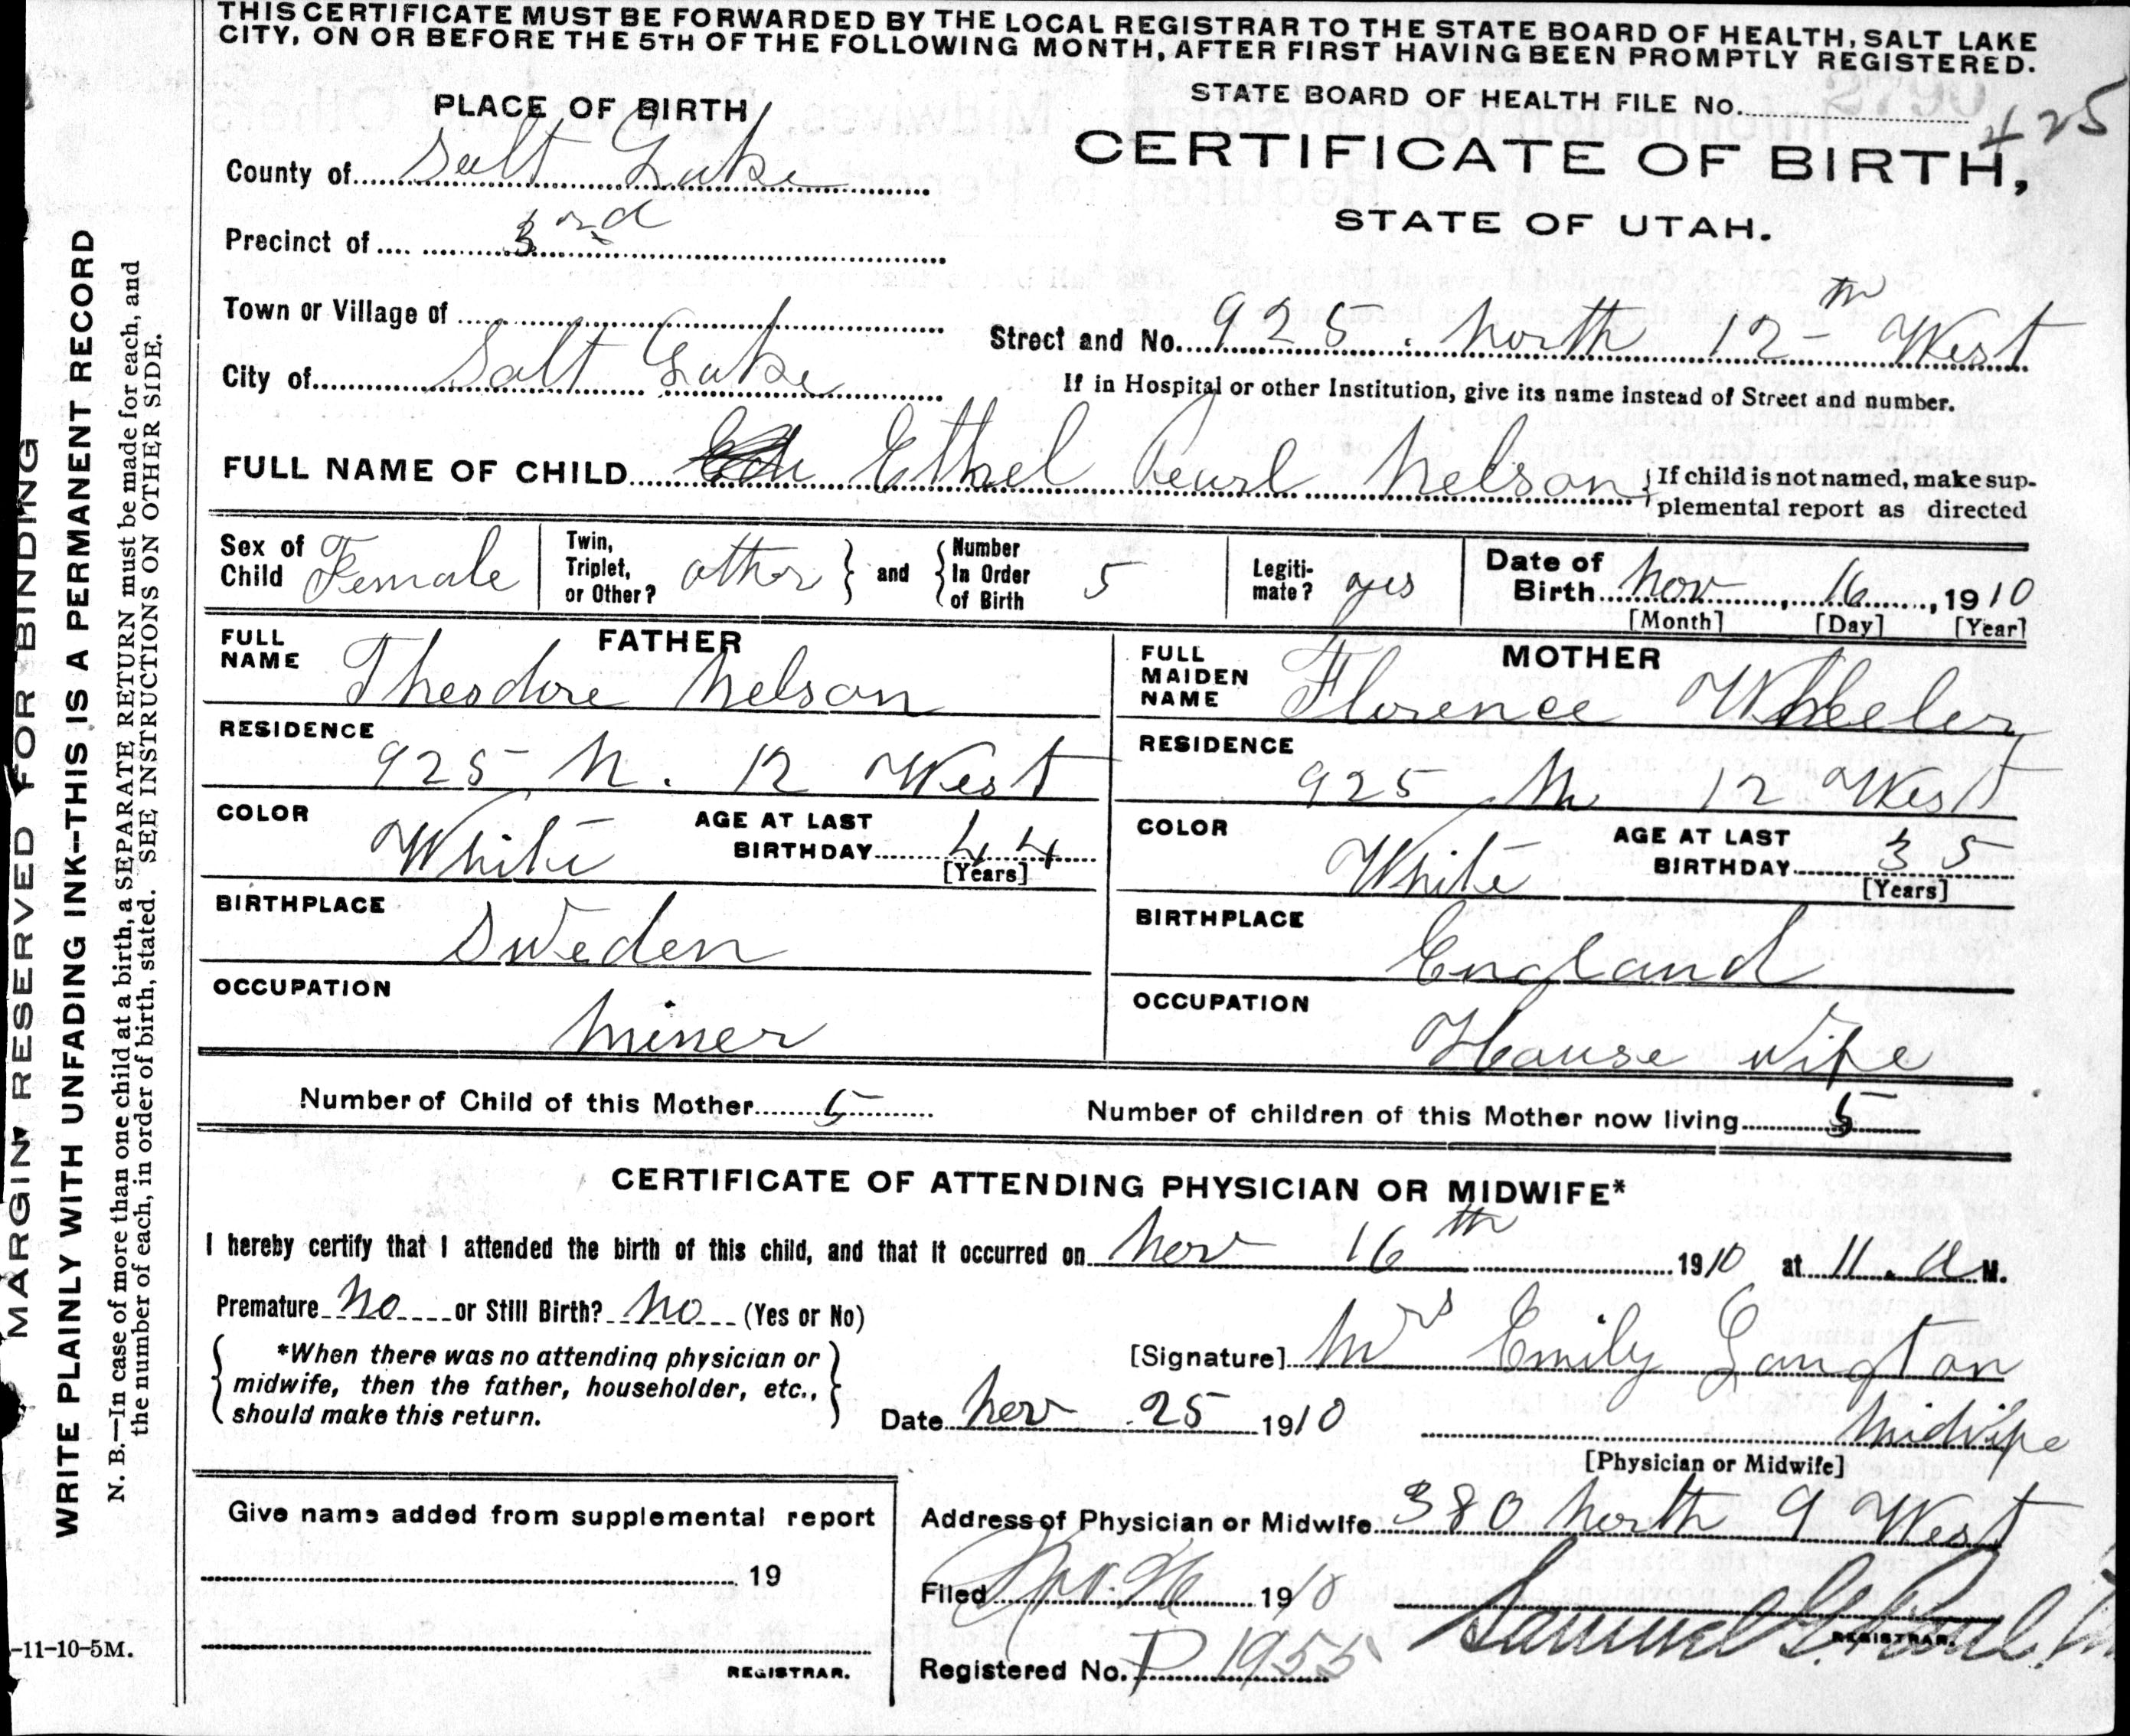 THIS CERTIFICATE MUST BE FORWARDED BY THE LOCAL REGISTRAR TO THE STATE BOARD OF HEALTH, SALT LAKE
CITY, ON OR BEFORE THE 5TH OF THE FOLLOWING MONTH, AFTER FIRST HAVING BEEN PROMPTLY REGISTERED.
STATE BOARD OF HEALTH FILE No.
425
PLACE OF BIRTH
CERTIFICATE OF BIRTH,
STATE OF UTAH.
County of Salt Lake
Precinct of 3rd
Town or Village of
Street and No. 925 . North 12th West
City of Salt Lake
If in Hospital or other Institution, give its name instead of Street and number.
FULL NAME OF CHILD Ethel Pearl Nelson
If child is not named, make sup-
plemental report as directed
Sex of Child Female
Twin, Triplet, or Other? other } and { Number In Order of Birth 5
Legiti-mate? yes
Date of Birth Nov, 16, 1910
[Month] [Day] [Year]
FATHER
FULL NAME Theodore Nelson
RESIDENCE 925 N. 12 West
COLOR White AGE AT LAST BIRTHDAY 44
[Years]
BIRTHPLACE Sweden
OCCUPATION Miner
MOTHER
FULL MAIDEN NAME Florence Wheeler
RESIDENCE 925 N 12 West
COLOR White AGE AT LAST BIRTHDAY 35
[Years]
BIRTHPLACE England
OCCUPATION House wife
Number of Child of this Mother 5 Number of children of this Mother now living 5
CERTIFICATE OF ATTENDING PHYSICIAN OR MIDWIFE*
I hereby certify that I attended the birth of this child, and that it occurred on Nov 16th 1910 at 11. A M.
Premature No or Still Birth? No (Yes or No)
*When there was no attending physician or
midwife, then the father, householder, etc.,
should make this return.
[Signature] Mrs Emily Langton
Date Nov 25 1910 Midwife
[Physician or Midwife]
Give name added from supplemental report
19
REGISTRAR.
Address of Physician or Midwife 380 North 9 West
Filed Nov. 26 1910 Samuel G. Paul
REGISTRAR.
Registered No. P 1955
-11-10-5M.
MARGIN RESERVED FOR BINDING
WRITE PLAINLY WITH UNFADING INK--THIS IS A PERMANENT RECORD
N. B.—In case of more than one child at a birth, a SEPARATE RETURN must be made for each, and
the number of each, in order of birth, stated. SEE INSTRUCTIONS ON OTHER SIDE.